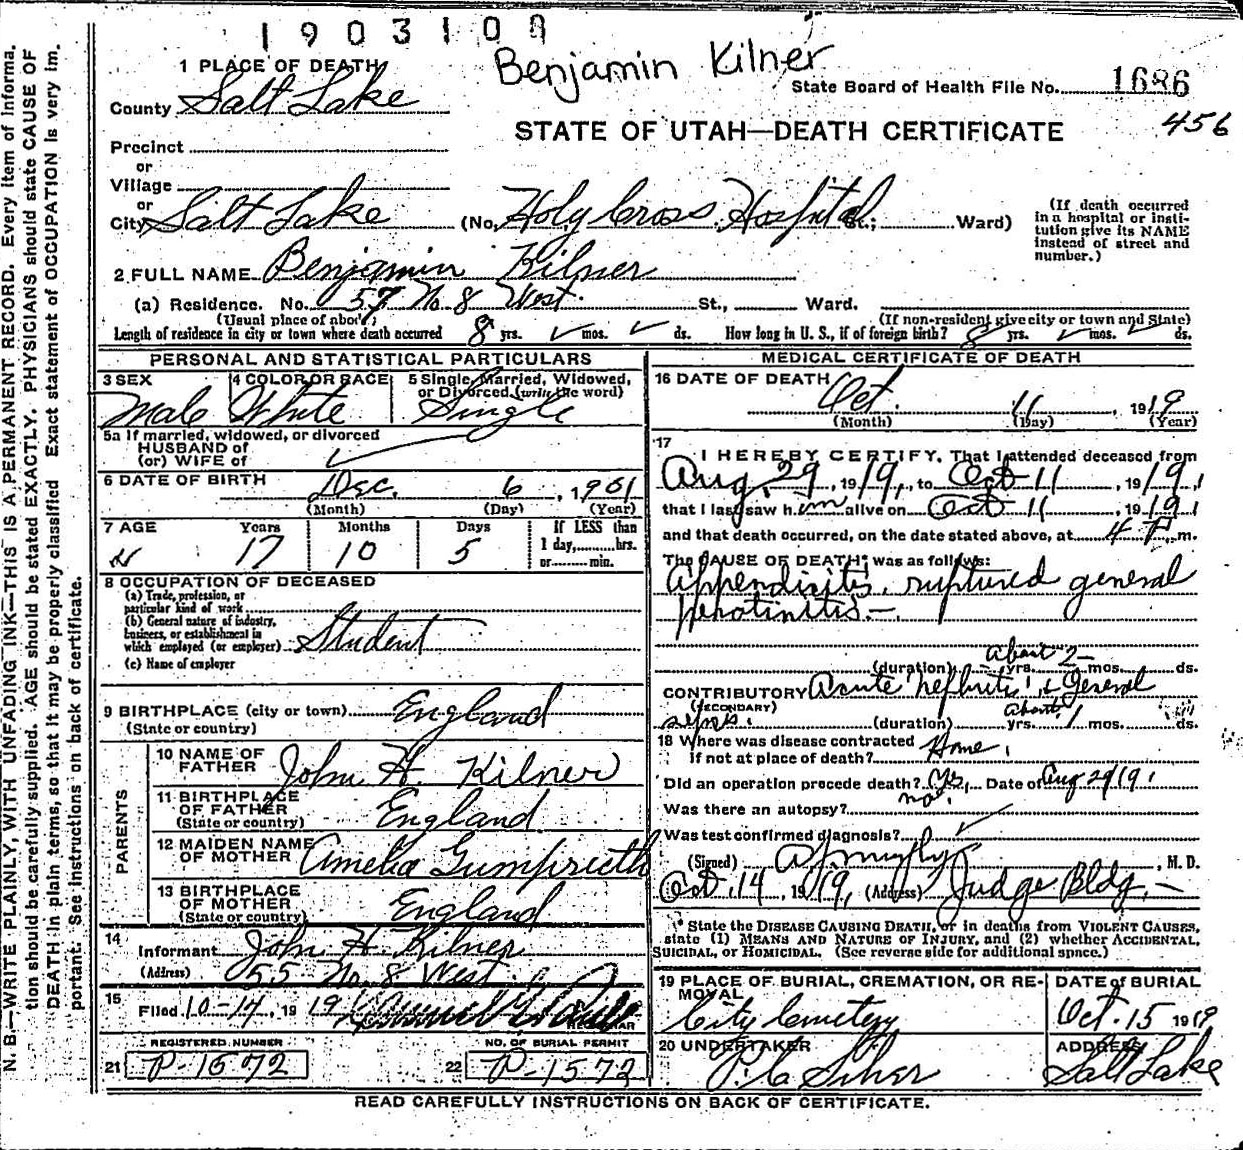 1903108
Benjamin Kilner
1 PLACE OF DEATH
County Salt Lake
State Board of Health File No. 1686
456
STATE OF UTAH—DEATH CERTIFICATE
Precinct
or
Village
or
City Salt Lake (No. Holy Cross Hospital St.; Ward)
(If death occurred in a hospital or insti-
tution give its NAME
instead of street and
number.)
2 FULL NAME Benjamin Kilner
(a) Residence. No. 57 No. 8 West. St., Ward.
(Usual place of abode) (If non-resident give city or town and State)
Length of residence in city or town where death occurred 8 yrs. mos. ds. How long in U. S., if of foreign birth? 8 yrs. mos. ds.
PERSONAL AND STATISTICAL PARTICULARS
3 SEX Male
4 COLOR OR RACE White
5 Single, Married, Widowed,
or Divorced (write the word)
Single
5a If married, widowed, or divorced
HUSBAND of
(or) WIFE of
6 DATE OF BIRTH Dec. 6, 1901
(Month) (Day) (Year)
7 AGE Years Months Days If LESS than
17 10 5 1 day, hrs.
or min.
8 OCCUPATION OF DECEASED
(a) Trade, profession, or
particular kind of work
(b) General nature of industry,
business, or establishment in
which employed (or employer) Student
(c) Name of employer
9 BIRTHPLACE (city or town) England
(State or country)
PARENTS
10 NAME OF
FATHER John H. Kilner
11 BIRTHPLACE
OF FATHER England
(State or country)
12 MAIDEN NAME
OF MOTHER Amelia
13 BIRTHPLACE
OF MOTHER England
(State or country)
14
Informant John H. Kilner
(Address) 55 No. 8 West.
15
Filed 10-14, 19 19
REGISTRAR
REGISTERED NUMBER
21 P-1572
NO. OF BURIAL PERMIT
22 P-1572
MEDICAL CERTIFICATE OF DEATH
16 DATE OF DEATH Oct. 11, 1919
(Month) (Day) (Year)
17
I HEREBY CERTIFY, That I attended deceased from
Aug. 29, 1919, to Oct 11, 1919,
that I last saw him alive on Oct 11, 1919,
and that death occurred, on the date stated above, at 4 P. m.
The CAUSE OF DEATH* was as follows:
Appendisitis, ruptured general
peratinitis.—
About 2
(duration) yrs. mos. ds.
CONTRIBUTORY Acute Nefritis, & General
(SECONDARY)
(duration) About yrs. 1 mos. ds.
18 Where was disease contracted
If not at place of death? Home.
Did an operation precede death? Yes. Date of Aug 29/19.
Was there an autopsy? no.
Was test confirmed diagnosis?
(Signed) , M. D.
Oct. 14, 1919, (Address) Judge Bldg.—
* State the DISEASE CAUSING DEATH, or in deaths from VIOLENT CAUSES,
state (1) MEANS AND NATURE OF INJURY, and (2) whether ACCIDENTAL,
SUICIDAL, or HOMICIDAL. (See reverse side for additional space.)
19 PLACE OF BURIAL, CREMATION, OR RE-
MOVAL
City Cemetery
DATE of BURIAL
Oct. 15 1919
20 UNDERTAKER
ADDRESS
Salt Lake
READ CAREFULLY INSTRUCTIONS ON BACK OF CERTIFICATE.
N. B.—WRITE PLAINLY, WITH UNFADING INK—THIS IS A PERMANENT RECORD. Every item of informa-
tion should be carefully supplied. AGE should be stated EXACTLY. PHYSICIANS should state CAUSE OF
DEATH in plain terms, so that it may be properly classified. Exact statement of OCCUPATION is very im-
portant. See instructions on back of certificate.